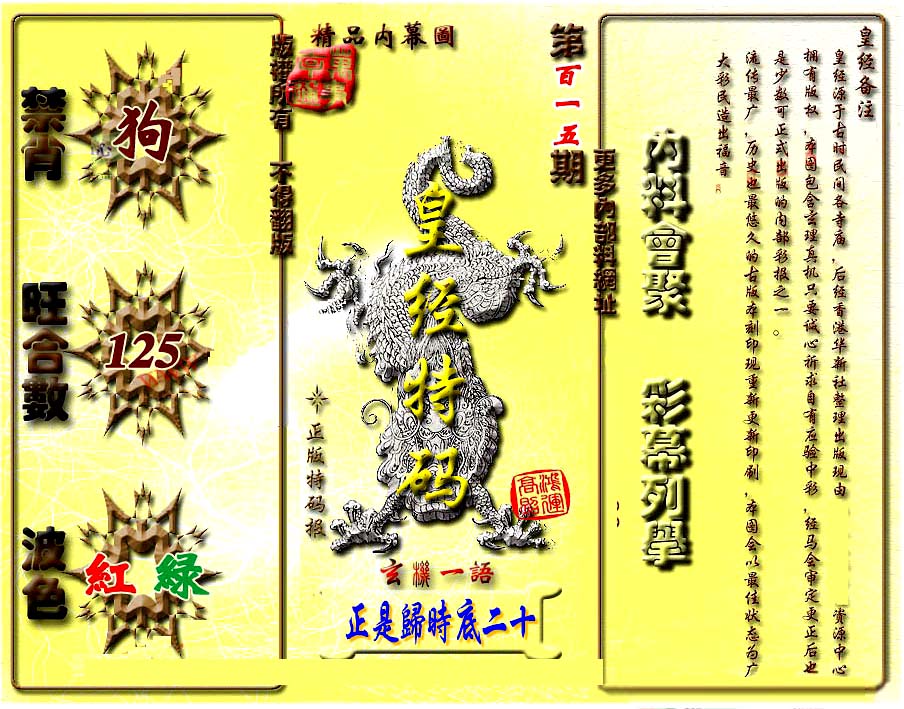 精品内幕圖
第百一五期
版權所有 不得翻版
更多內部料網址
禁肖
狗
旺合數
125
波色
紅 綠
皇经特码
正版特码报
鴻運高照
玄機一語
正是歸時底二十
內料會聚 彩幕列舉
皇经备注
皇经源于古时民间各寺庙，后经香港华新社整理出版现由 资源中心
拥有版权，本图包含玄理真机只要诚心祈求自有应验中彩，经马会审定更正后也
是少数可正式出版的内部彩报之一。
流传最广，历史也最悠久的古版本刻印现重新更新印刷，本图会以最佳状态为广
大彩民造出福音。